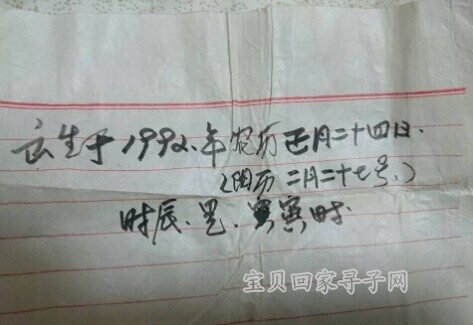 出生于1992.年农历正月二十四日.
(阳历二月二十七号.)
时辰.是.寅时.
宝贝回家寻子网